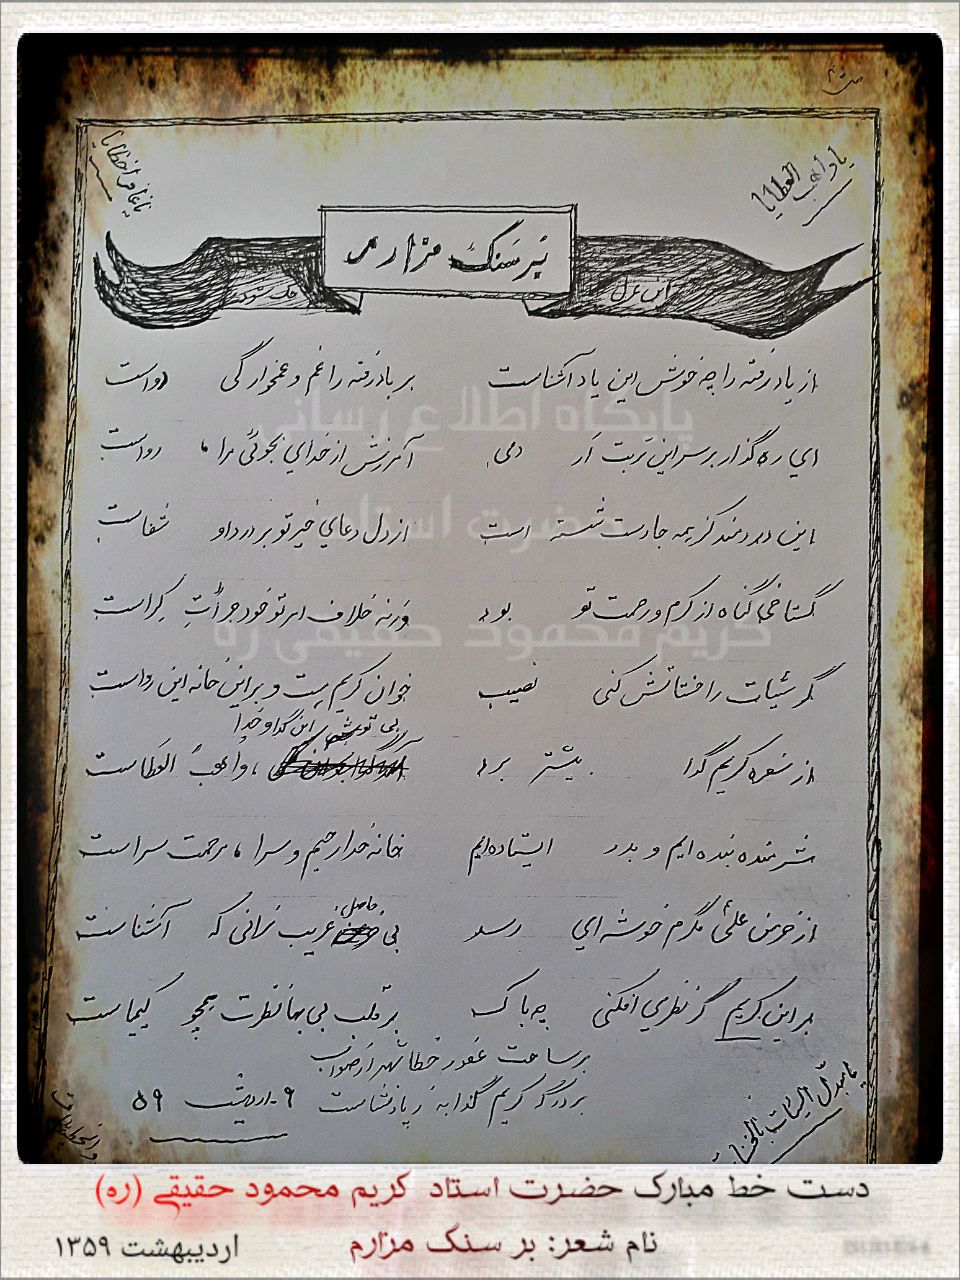 یا واهب العطایا
یا غافر الخطایا
بَر سَنگ مزارم
این غزل
حک شود
از یاد رفته را چه خوش این یاد آشناست بر باد رفته را غم و غمخوارگی رواست
ای ره گذار بر سر این تربت ار دمی آمرزش از خدای بجوئی مرا، رواست
این دردمند کز همه جا دست شسته است از دل دعای خیر تو بر درد او شفاست
گستاخی گناه از کرم و رحمت تو بود ورنه خلاف امر تو خود جرأتِ کراست
گر سیّئات را حسناتش کنی نصیب خوان کریم هست و بر این خانه این رواست
بی توشه این گدا و خدا
از سفره کریم گدا بیشتر برد ، واهبُ العَطاست
شرمنده بنده ایم و بدر ایستاده‌ایم خانه خدا رحیم و سرا ، رحمت سراست
حاصل
از خرمن علی مگرم خوشه‌ای رسد بی غریب نرانی که آشناست
بر این کریم گر نظری افکنی چه باک بر قلب بی بها نظرت همچو کیمیاست
بر ساحت غفور خطا
بر درگه کریم گدا به ز پادشاست ۹-اردیبهشت ۵۹
یا مبدّل السیّئات بالحسنات
پایگاه اطلاع رسانی
حضرت استاد
کریم محمود حقیقی ره
دست خط مبارک حضرت استاد کریم محمود حقیقی (ره)
نام شعر: بر سنگ مزارم
اردیبهشت ۱۳۵۹